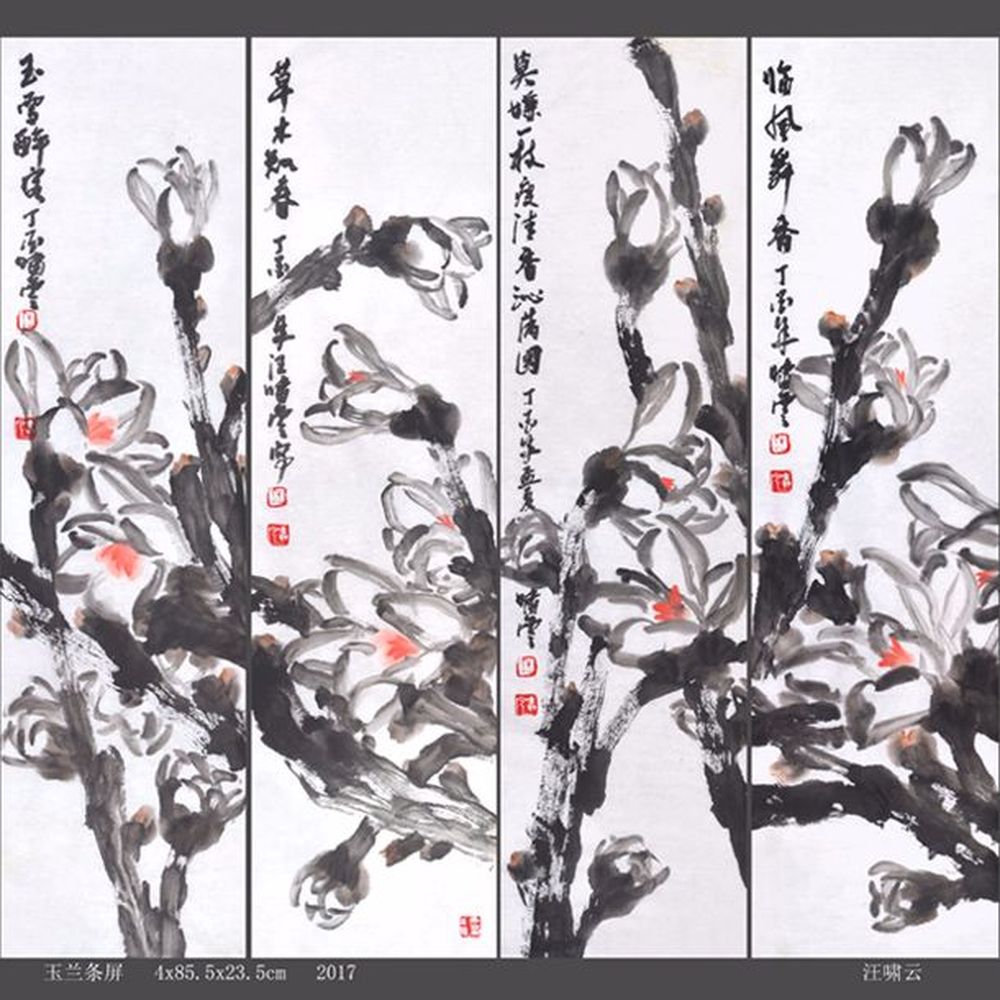 玉雪醉客 丁酉啸云
草木知春 丁酉年汪啸云写
莫嫌一枝瘦清香沁满园 丁酉年孟夏
啸云
临风舞香 丁酉年啸云
玉兰条屏 4x85.5x23.5cm 2017
汪啸云